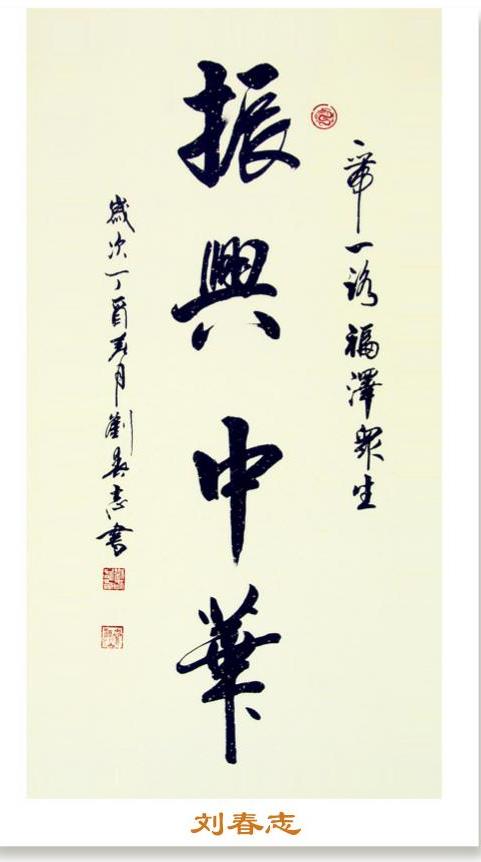 一帶一路福澤眾生
振興中華
歲次丁酉春月劉春志書
刘春志